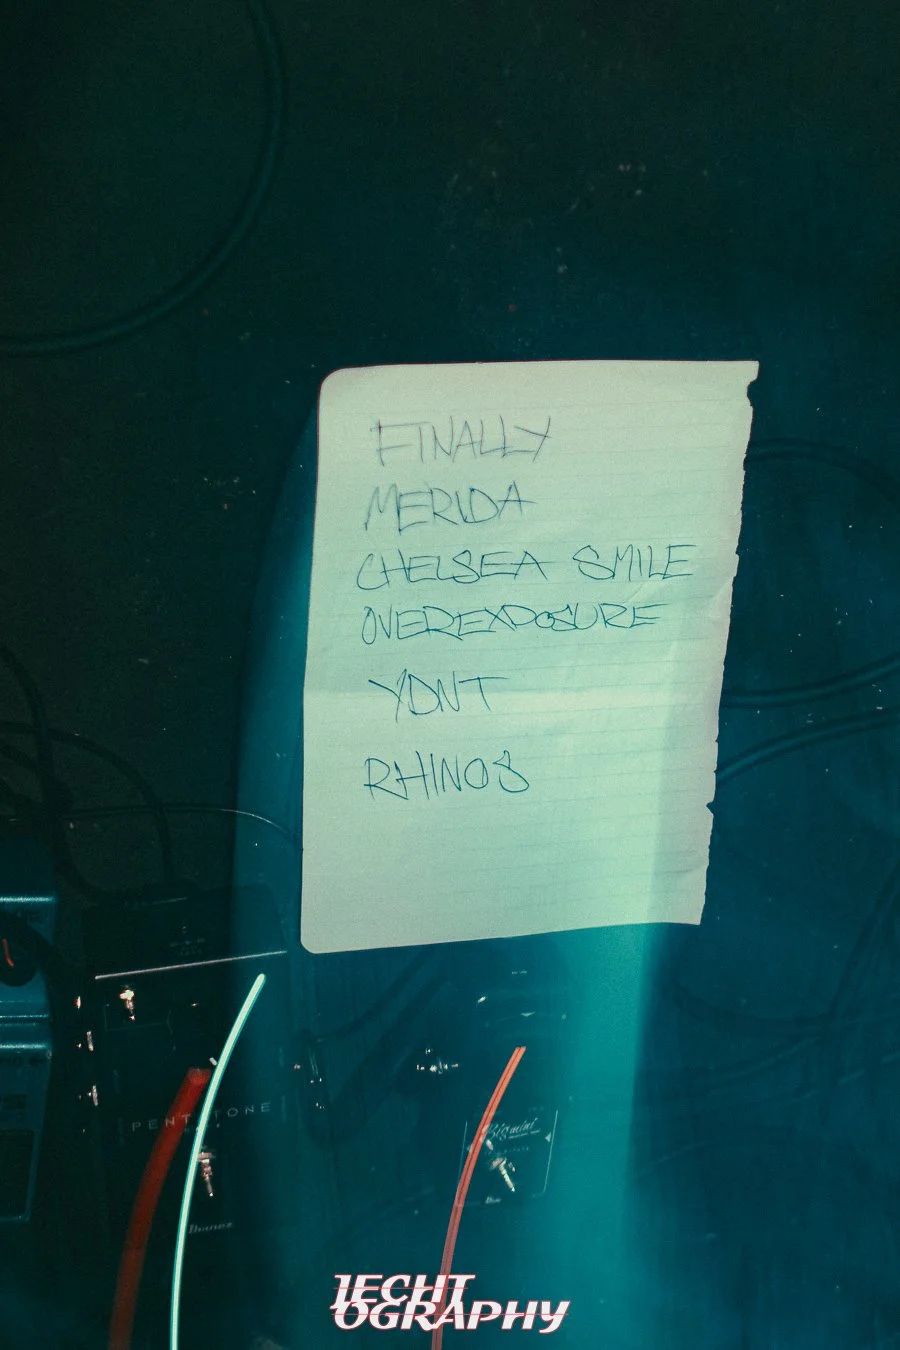 FINALLY
MERIDA
CHELSEA SMILE
OVEREXPOSURE
YDNT
RHINOS
PENTATONE
Bigmini
Ibanez
IECHT
OGRAPHY